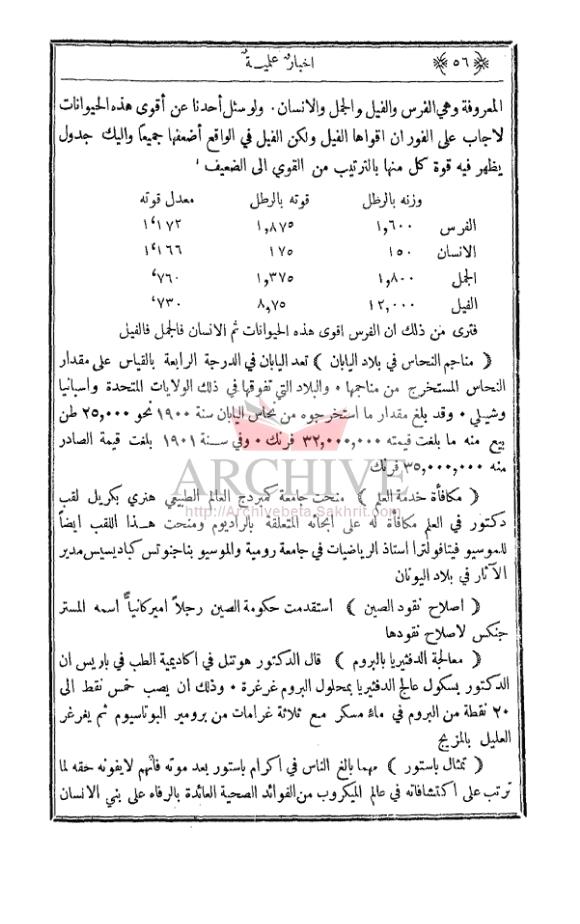 ﴿ ٥٦ ﴾ اخبار علمية
المعروفة وهي الفرس والفيل والجمل والانسان ٠ ولو سئل أحدنا عن أقوى هذه الحيوانات
لاجاب على الفور ان اقواها الفيل ولكن الفيل في الواقع أضعفها جميعا واليك جدول
يظهر فيه قوة كل منها بالترتيب من القوي الى الضعيف
وزنه بالرطل قوته بالرطل معدل قوته
الفرس ١,٦٠٠ ١,٨٧٥ ١٬١٧٢
الانسان ١٥٠ ١٧٥ ١٬١٦٦
الجمل ١,٨٠٠ ١,٣٧٥ ٬٧٦٠
الفيل ١٢,٠٠٠ ٨,٧٥ ٬٧٣٠
فترى من ذلك ان الفرس اقوى هذه الحيوانات ثم الانسان فالجمل فالفيل
﴿ مناجم النحاس في بلاد اليابان ﴾ تعد اليابان في الدرجة الرابعة بالقياس على مقدار
النحاس المستخرج من مناجمها ٠ والبلاد التي تفوقها في ذلك الولايات المتحدة واسبانيا
وشيلي ٠ وقد بلغ مقدار ما استخرجوه من نحاس اليابان سنة ١٩٠٠ نحو ٢٥,٠٠٠ طن
بيع منه ما بلغت قيمته ٣٢,٠٠٠,٠٠٠ فرنك ٠ وفي سنة ١٩٠١ بلغت قيمة الصادر
منه ٣٥,٠٠٠,٠٠٠ فرنك
ARCHIVE
﴿ مكافأة خدمة العلم ﴾ منحت جامعة كمبردج العالم الطبيعي هنري بكريل لقب
http://Archivebeta.Sakhrit.com
دكتور في العلم مكافأة له على ابحاثه المتعلقة بالراديوم ومنحت هذا اللقب ايضاً
للموسيو فيتافولترا استاذ الرياضيات في جامعة رومية والموسيو بناجنوتس كباديسيس مدير
الآثار في بلاد اليونان
﴿ اصلاح نقود الصين ﴾ استقدمت حكومة الصين رجلاً اميركانياً اسمه المستر
جنكس لاصلاح نقودها
﴿ معالجة الدفثيريا بالبروم ﴾ قال الدكتور هوتنل في اكاديمية الطب في باريس ان
الدكتور بسكول عالج الدفثيريا بمحلول البروم غرغرة ٠ وذلك ان يصب خمس نقط الى
٢٠ نقطة من البروم في ماء مسكر مع ثلاثة غرامات من برومير البوتاسيوم ثم يغرغر
العليل بالمزيج
﴿ تمثال باستور ﴾ مهما بالغ الناس في اكرام باستور بعد موته فانهم لايفونه حقه لما
ترتب على اكتشافاته في عالم الميكروب من الفوائد الصحية العائدة بالرفاه على بني الانسان